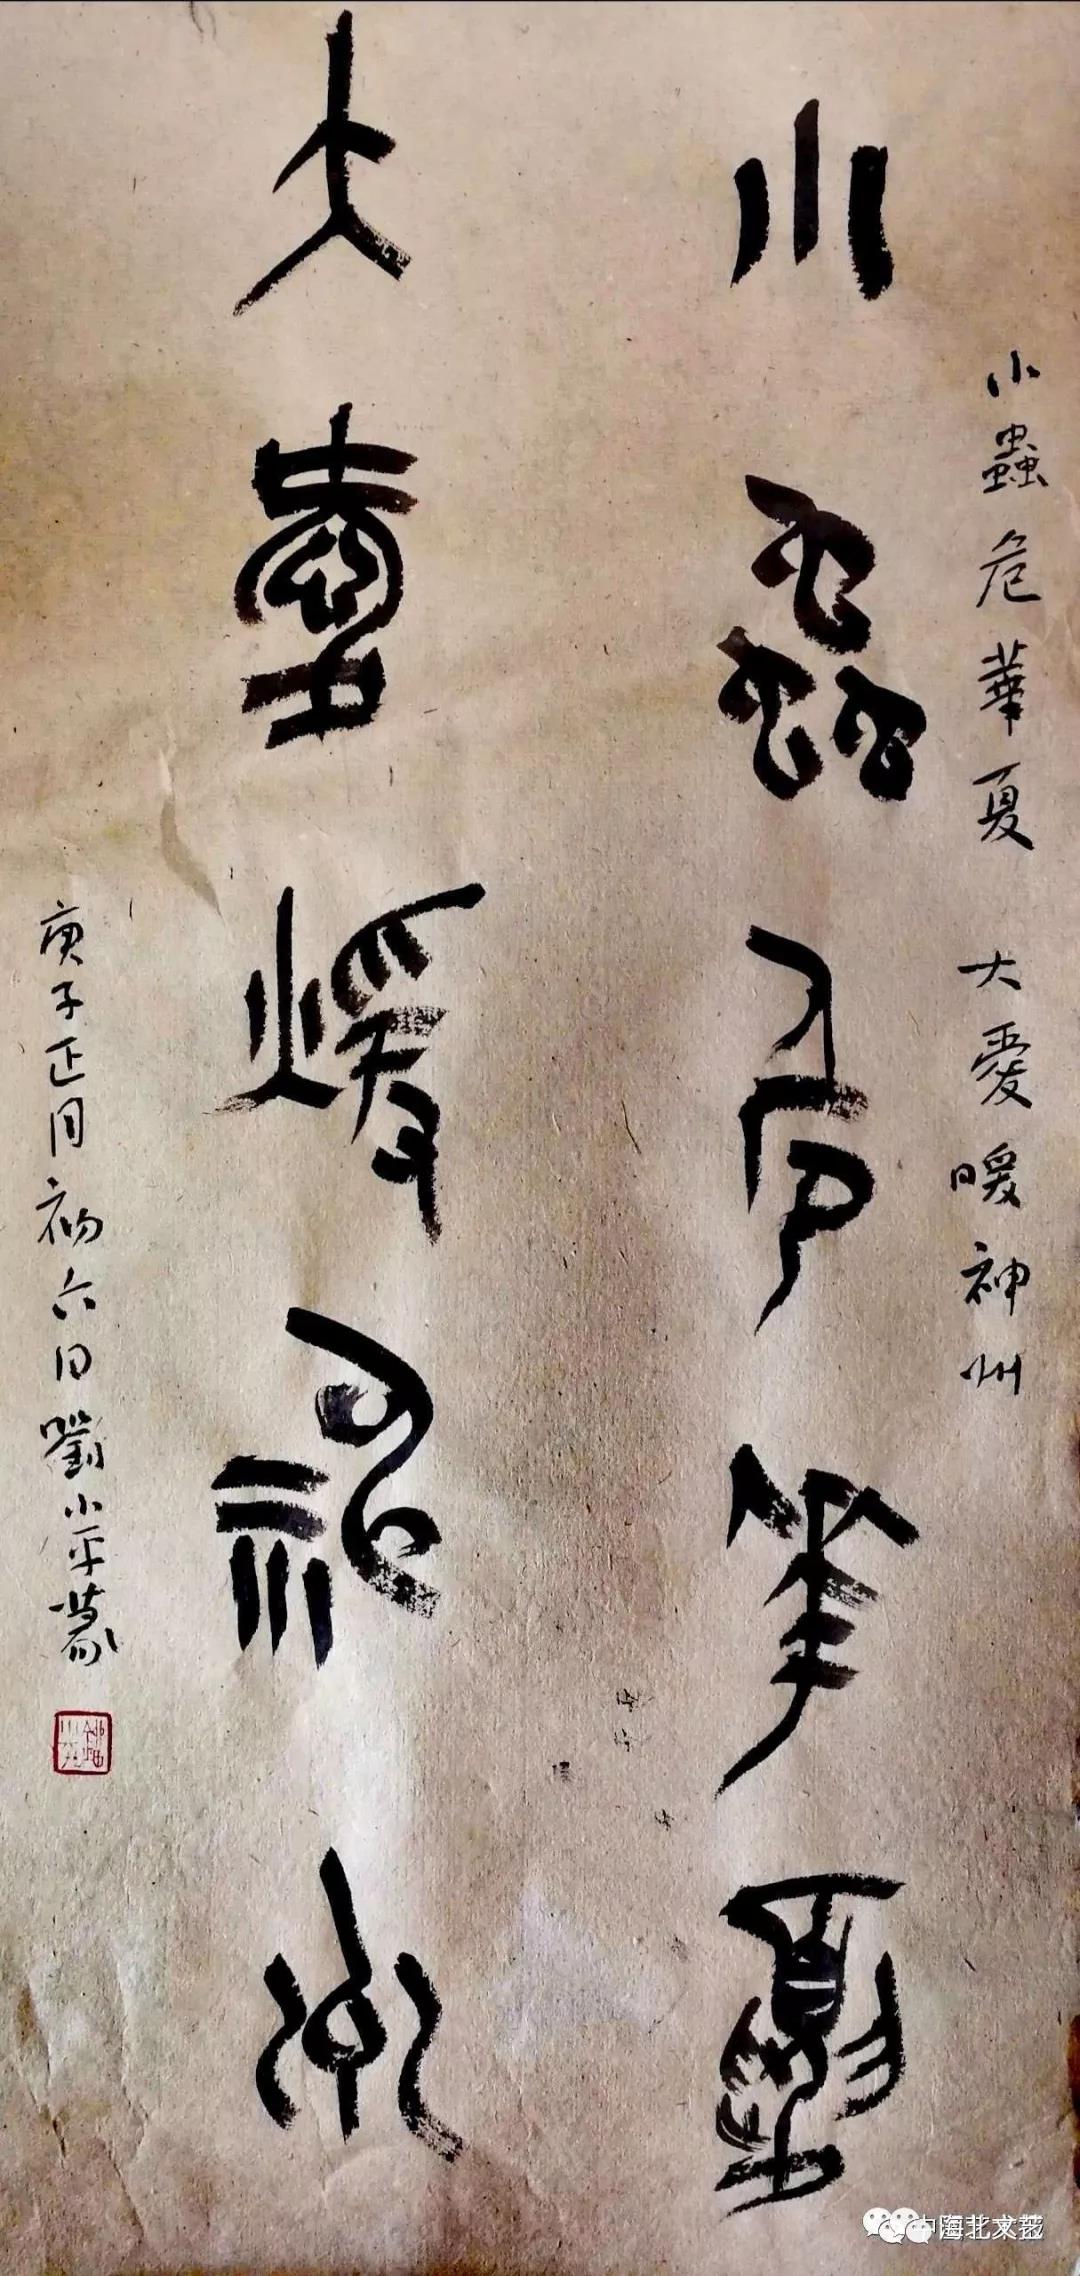 小蟲危華夏 大愛暖神州
小蟲危華夏
大愛煖神州
庚子正月初六日劉小平篆